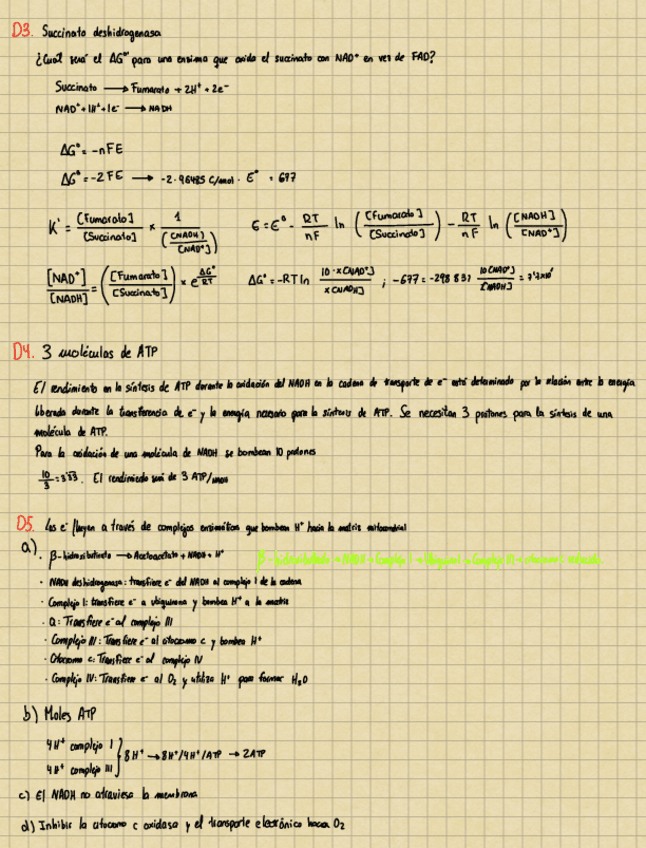 D3. Succinato deshidrogenasa
¿Cuál será el ΔG°' para una enzima que oxida el succinato con NAD⁺ en vez de FAD?
Succinato ⟶ Fumarato + 2H⁺ + 2e⁻
NAD⁺ + 1H⁺ + 1e⁻ ⟶ NADH
ΔG° = -nFE
ΔG° = -2FE ⟶ -2 · 96485 C/mol · E° = 677
K' = [Fumarato]/[Succinato] × 1/([NADH]/[NAD⁺]) E = E° - RT/nF ln ([Fumarato]/[Succinato]) - RT/nF ln ([NADH]/[NAD⁺])
[NAD⁺]/[NADH] = ([Fumarato]/[Succinato]) × e^(ΔG°/RT) ΔG° = -RT ln 10·x[NAD⁺]/x[NADH] ; -677 = -298 8'31 10[NAD⁺]/[NADH] =
D4. 3 moléculas de ATP
El rendimiento en la síntesis de ATP durante la oxidación del NADH en la cadena de transporte de e⁻ está determinado por la relación entre la energía
liberada durante la transferencia de e⁻ y la energía necesaria para la síntesis de ATP. Se necesitan 3 protones para la síntesis de una
molécula de ATP.
Para la oxidación de una molécula de NADH se bombean 10 protones
10/3 = 3'33. El rendimiento será de 3 ATP/NADH
D5. Los e⁻ fluyen a través de complejos enzimáticos que bombean H⁺ hacia la matriz mitocondrial
a). β-hidroxibutirato ⟶ Acetoacetato + NADH + H⁺ β-hidroxibutirato → NADH → Complejo I → Ubiquinol → Complejo III → citocromo
· NADH deshidrogenasa: transfiere e⁻ del NADH al complejo I de la cadena
· Complejo I: transfiere e⁻ a ubiquinona y bombea H⁺ a la matriz
· Q: Transfiere e⁻ al complejo III
· Complejo III: Transfiere e⁻ al citocromo c y bombea H⁺
· Citocromo c: Transfiere e⁻ al complejo IV
· Complejo IV: Transfiere e⁻ al O₂ y utiliza H⁺ para formar H₂O
b) Moles ATP
4H⁺ complejo I
4H⁺ complejo III } 8H⁺ → 8H⁺/4H⁺/ATP → 2ATP
c) El NADH no atraviesa la membrana
d) Inhibir la citocromo c oxidasa y el transporte electrónico hacia O₂